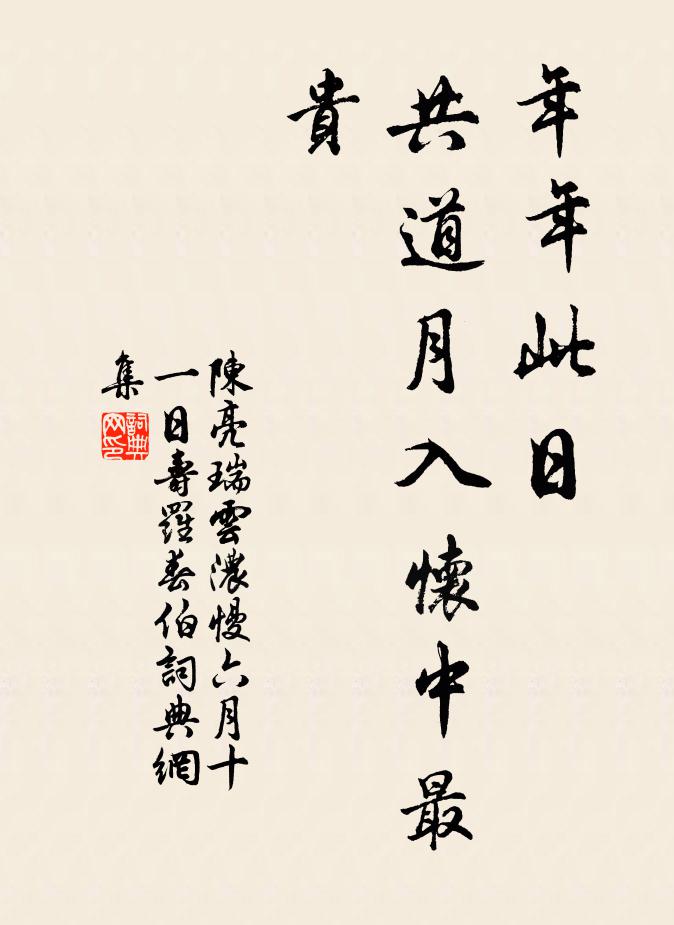 年年此日
共道月入懷中最
貴
陳亮瑞雲濃慢六月十
一日壽羅春伯詞典網
集
詞典
网印